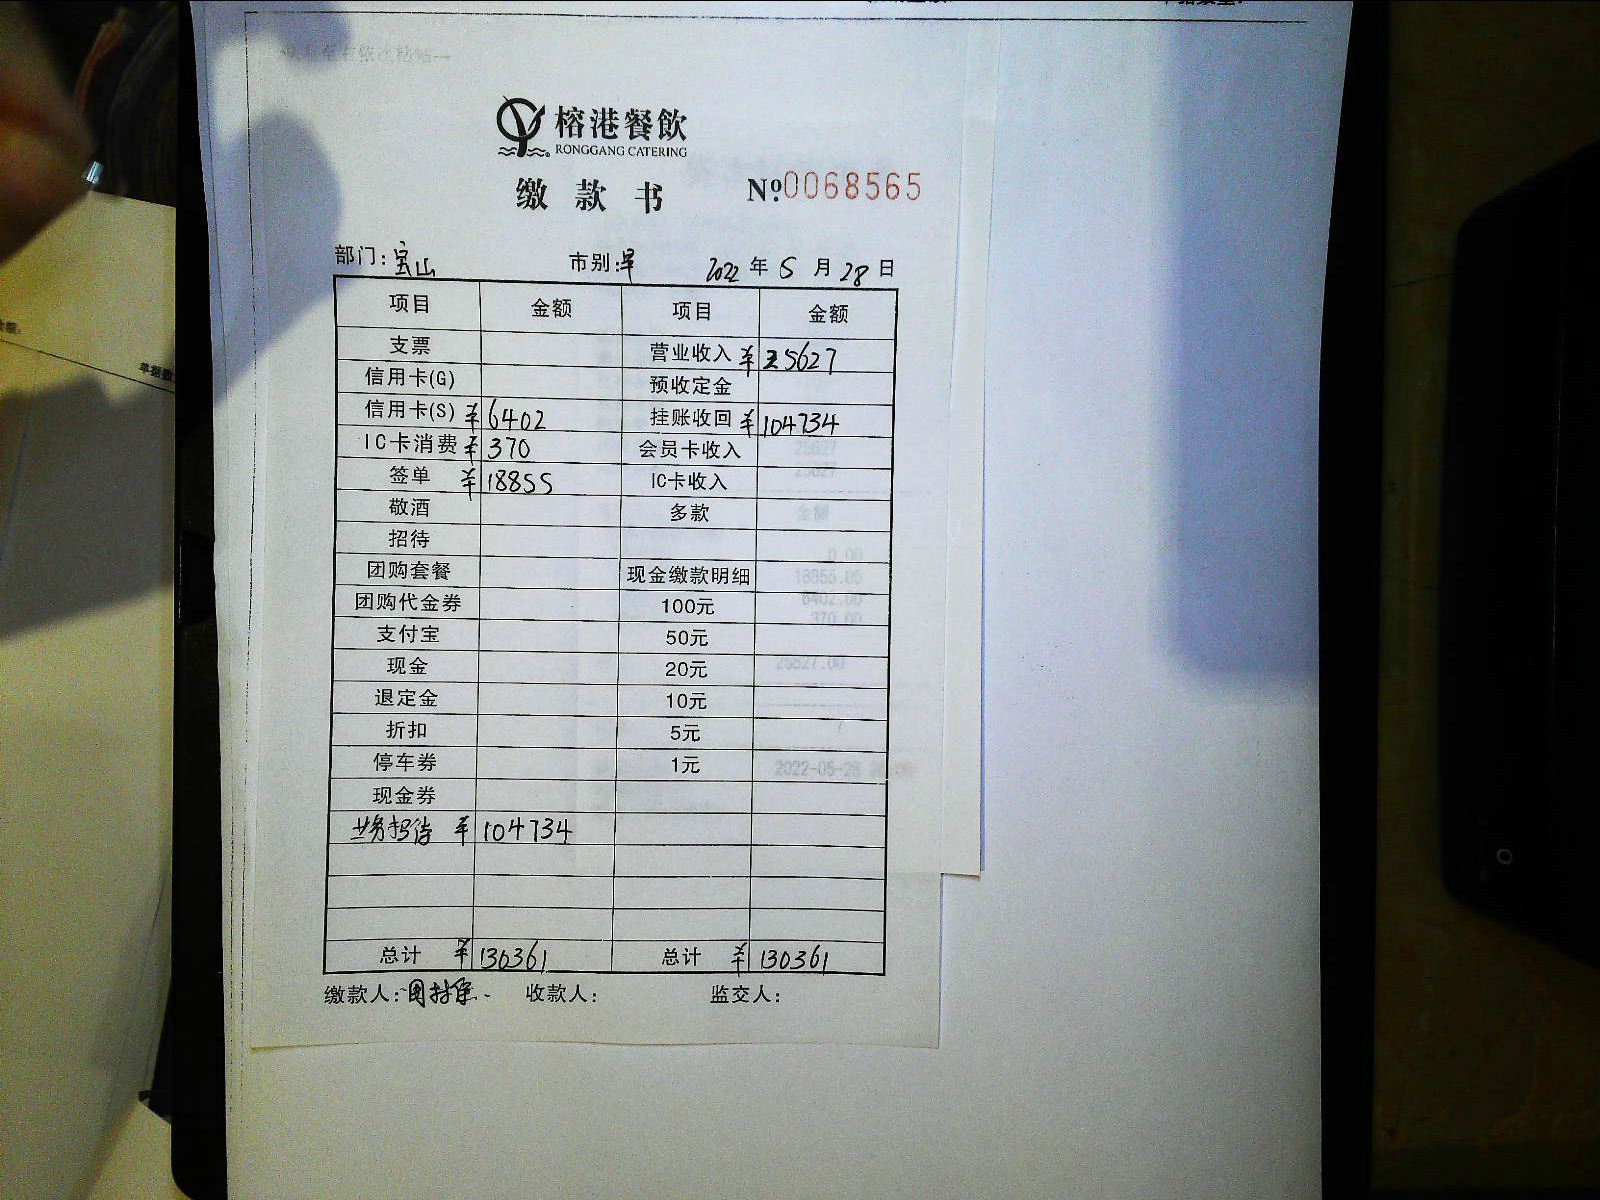 榕港餐飲
RONGGANG CATERING
缴款书 №0068565
部门：宝山 市别：早 2022年5月28日
项目 金额 项目 金额
支票 营业收入 ¥25627
信用卡(G) 预收定金
信用卡(S) ¥6402 挂账收回 ¥104734
IC卡消费 ¥370 会员卡收入
签单 ¥18855 IC卡收入
敬酒 多款
招待
团购套餐 现金缴款明细
团购代金券 100元
支付宝 50元
现金 20元
退定金 10元
折扣 5元
停车券 1元
现金券
业务招待 ¥104734
总计 ¥130361 总计 ¥130361
缴款人： 收款人： 监交人：